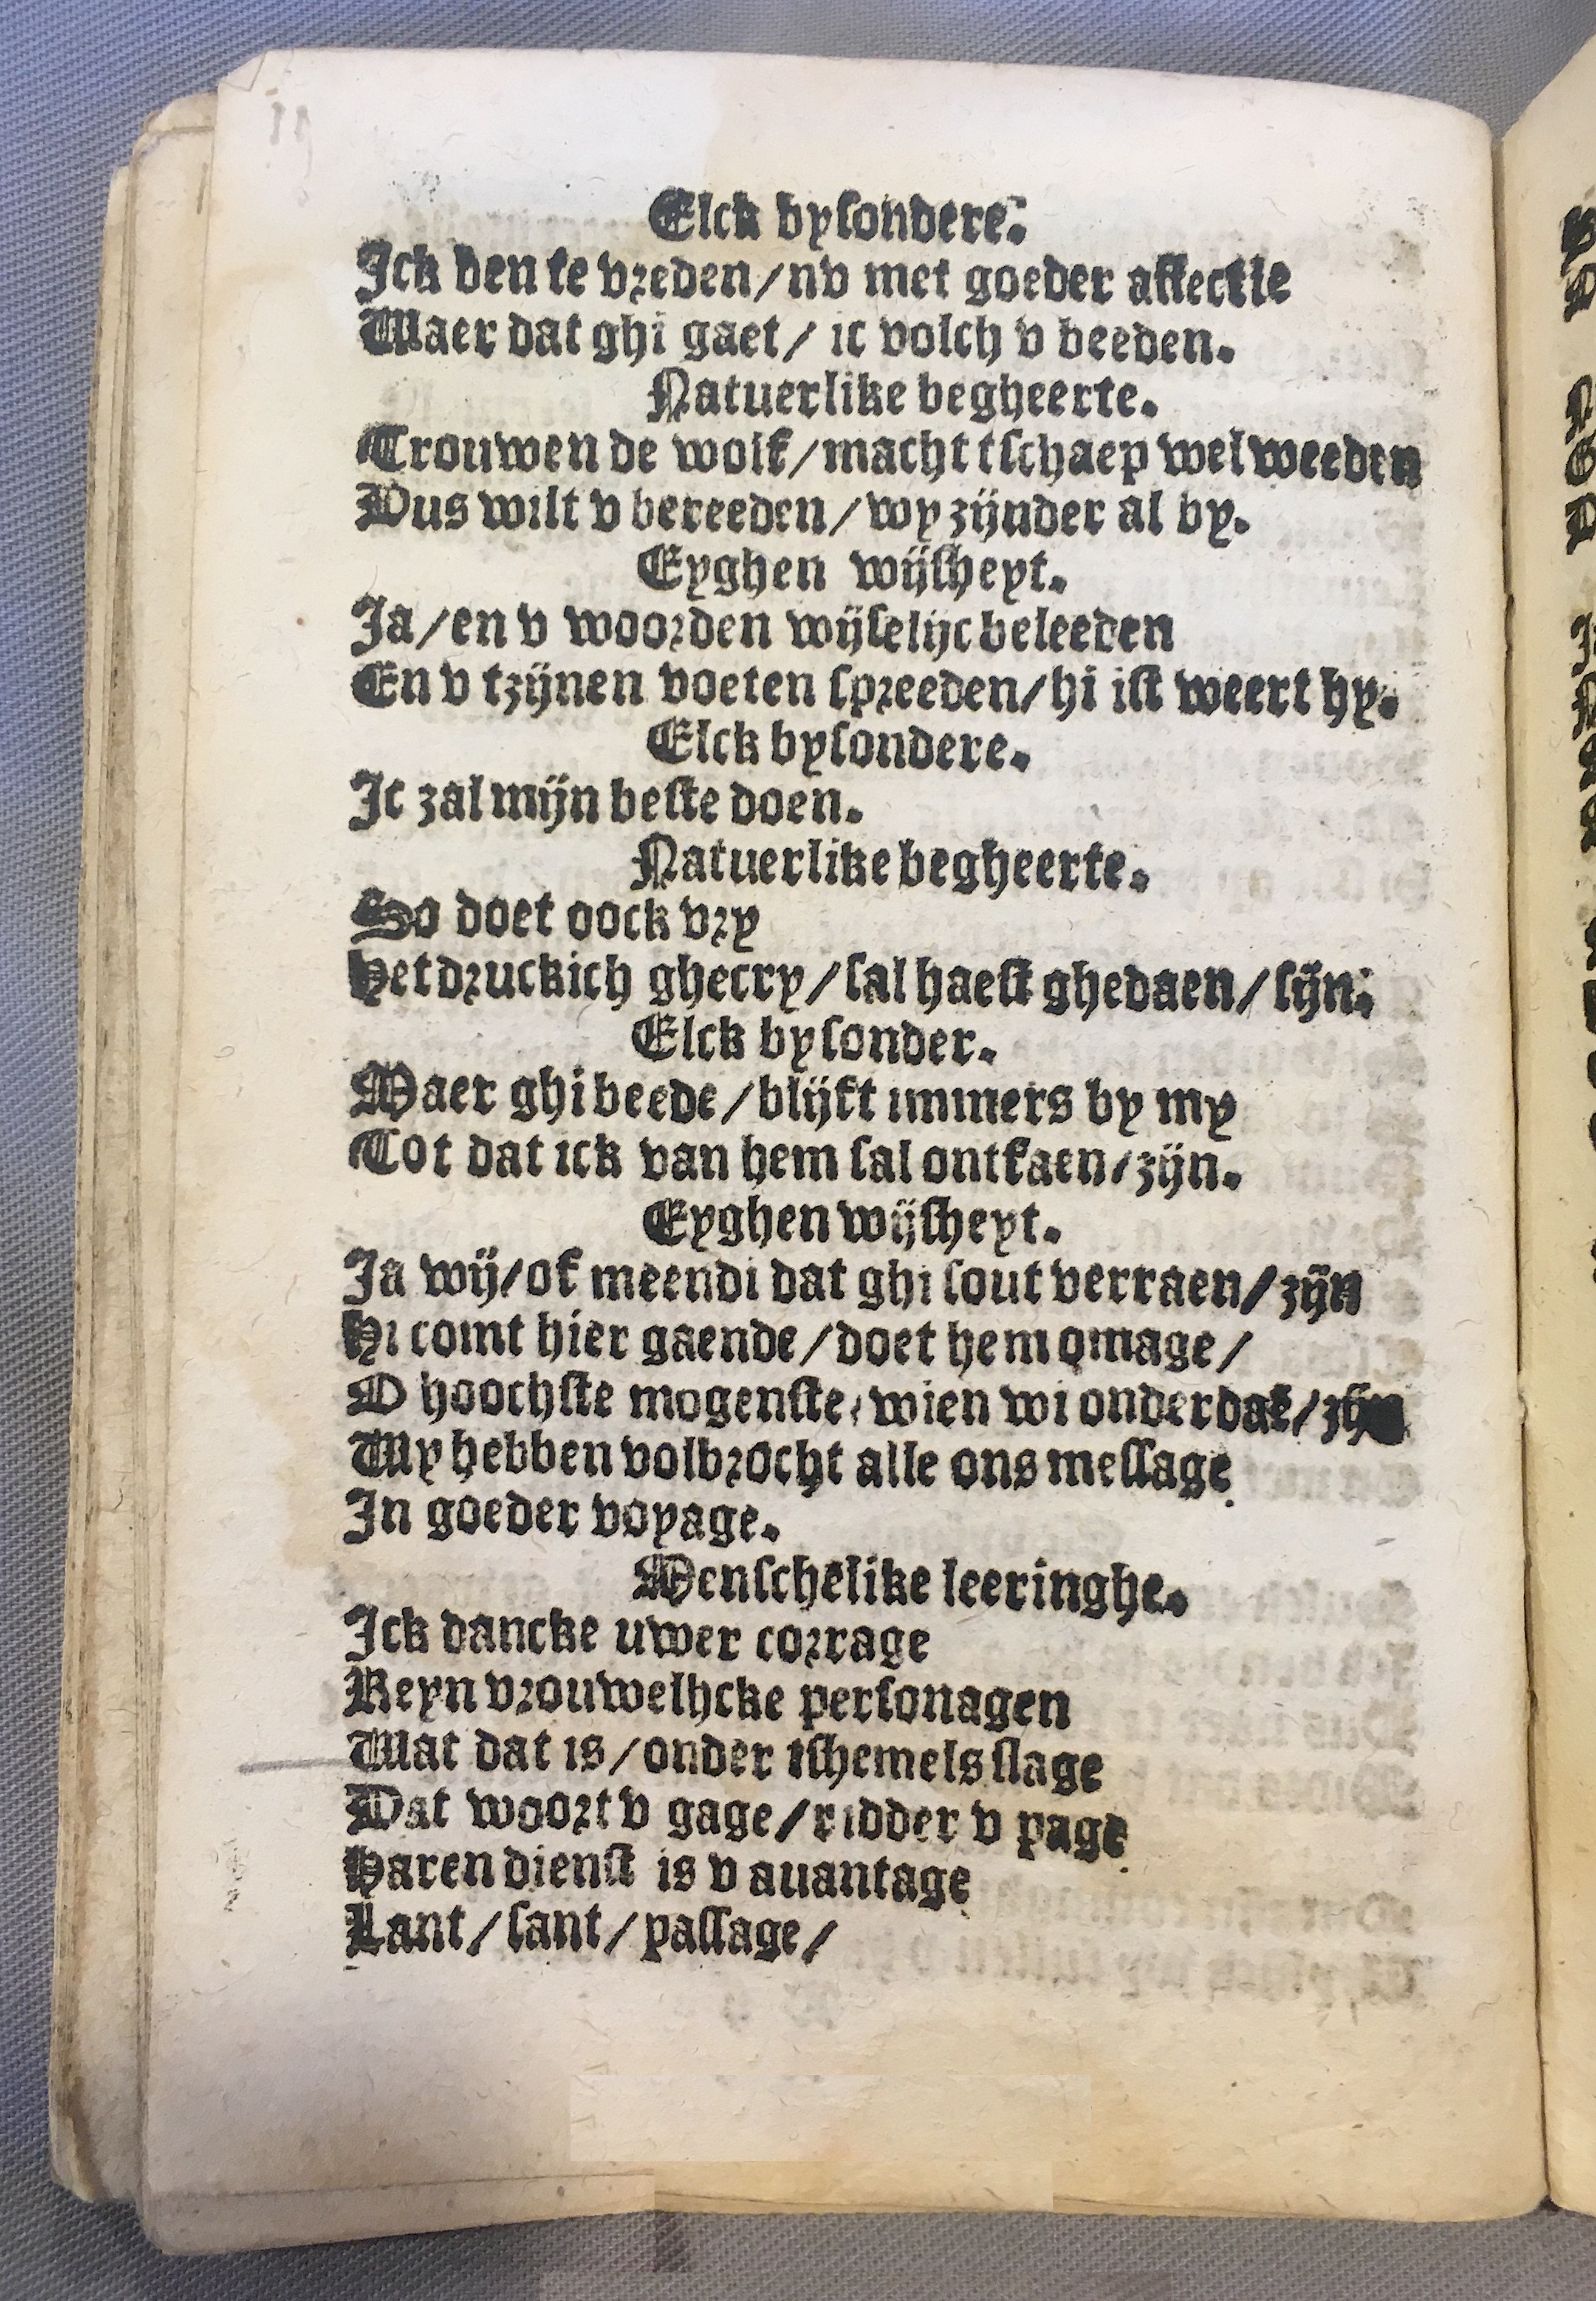 Elck bysondere.
Ick ben te vreden/nv met goeder affectie
Waer dat ghi gaet/ ic volch v beeden.
Natuerlike begheerte.
Trouwen de wolf/macht tschaep wel weeden
Dus wilt v bereeden/wy zijnder al by.
Eyghen wijsheyt.
Ja/en v woorden wijselijc beleeden
En v tzijnen voeten spreeden/hi ist weert hy.
Elck bysondere.
Ic zal mijn beste doen.
Natuerlike begheerte.
So doet oock vry
Het druckich ghecry/sal haest ghedaen/sijn.
Elck bysonder.
Maer ghi beede/blijft immers by my
Tot dat ick van hem sal ontfaen/zijn.
Eyghen wijsheyt.
Ja wij/of meendi dat ghi sout verraen/zijn
Hi comt hier gaende/doet hem omage/
O hoochste mogenste/wien wi onderdaē/zijn
Wy hebben volbrocht alle ons message
In goeder voyage.
Menschelike leeringhe.
Ick dancke uwer corrage
Reyn vrouwelijcke personagen
Wat dat is/onder tshemels slage
Dat woort v gage/ridder v page
Haren dienst is v auantage
Lant/sant/passage/